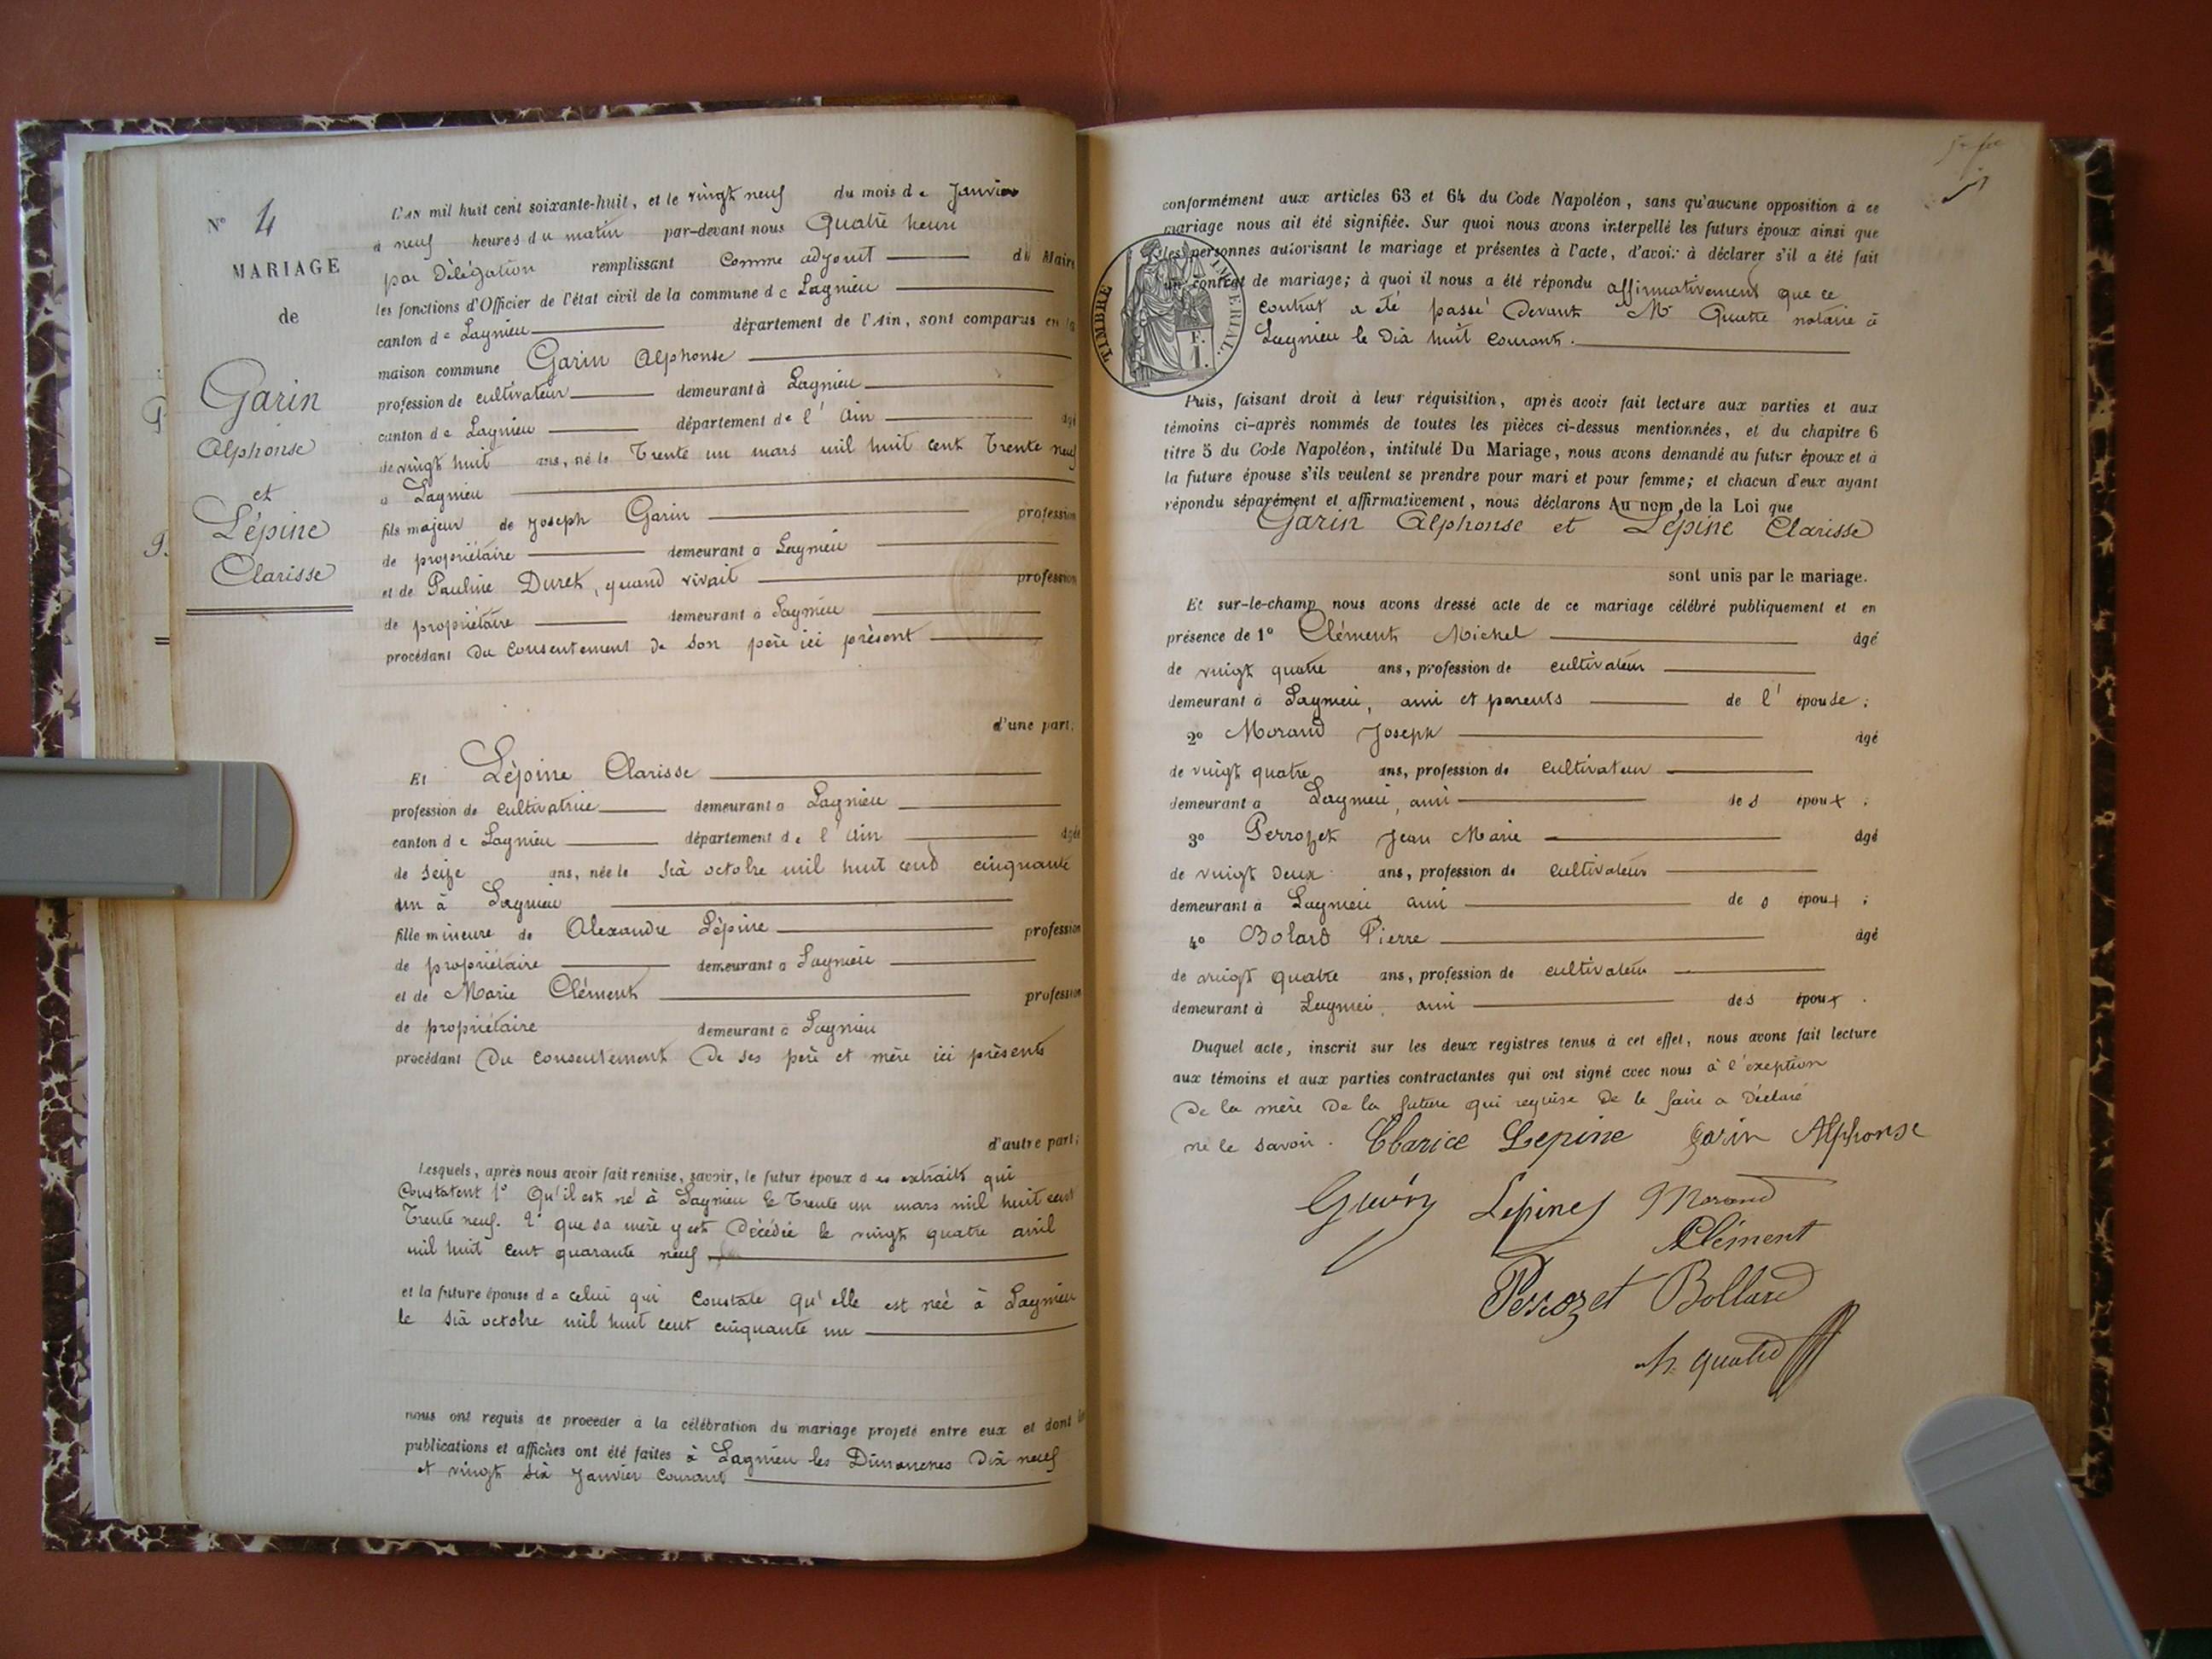 N° 4
MARIAGE
de
Garin
Alphonse
et
Lépine
Clarisse
L'AN mil huit cent soixante-huit, et le vingt neuf du mois de Janvier
à neuf heures du matin par-devant nous Quatre henri
par Délégation remplissant comme adjoint du Maire
les fonctions d'Officier de l'état civil de la commune de Lagnieu
canton de Lagnieu département de l'Ain, sont comparus en la
maison commune Garin Alphonse
profession de cultivateur demeurant à Lagnieu
canton de Lagnieu département de l'Ain âgé
de vingt huit ans, né le Trente un mars mil huit cent Trente neuf
à Lagnieu
fils majeur de Joseph Garin profession
de propriétaire demeurant à Lagnieu
et de Pauline Duret, quand vivait profession
de propriétaire demeurant à Lagnieu
procédant du consentement de son père ici présent
d'une part;
Et Lépine Clarisse
profession de cultivatrice demeurant à Lagnieu
canton de Lagnieu département de l'Ain âgée
de seize ans, née le six octobre mil huit cent cinquante
un à Lagnieu
fille mineure de Alexandre Lépine profession
de propriétaire demeurant à Lagnieu
et de Marie Clément profession
de propriétaire demeurant à Lagnieu
procédant du consentement de ses père et mère ici présents
d'autre part;
Lesquels, après nous avoir fait remise, savoir, le futur époux des extraits qui
constatent 1° Qu'il est né à Lagnieu le Trente un mars mil huit cent
Trente neuf. 2° que sa mère y est décédée le vingt quatre avril
mil huit cent quarante neuf
et la future épouse de celui qui constate qu'elle est née à Lagnieu
le six octobre mil huit cent cinquante un
nous ont requis de proceder à la célébration du mariage projeté entre eux et dont les
publications et affiches ont été faites à Lagnieu les Dimanches Dix neuf
et vingt six Janvier courant
conformément aux articles 63 et 64 du Code Napoléon, sans qu'aucune opposition à ce
mariage nous ait été signifiée. Sur quoi nous avons interpellé les futurs époux ainsi que
les personnes autorisant le mariage et présentes à l'acte, d'avoir à déclarer s'il a été fait
un contrat de mariage; à quoi il nous a été répondu affirmativement que ce
contrat a été passé devant Me Quatre notaire à
Lagnieu le Dix huit courant.
TIMBRE IMPERIAL.
F.
1.
Puis, faisant droit à leur réquisition, après avoir fait lecture aux parties et aux
témoins ci-après nommés de toutes les pièces ci-dessus mentionnées, et du chapitre 6
titre 5 du Code Napoléon, intitulé Du Mariage, nous avons demandé au futur époux et à
la future épouse s'ils veulent se prendre pour mari et pour femme; et chacun d'eux ayant
répondu séparément et affirmativement, nous déclarons Au nom de la Loi que
Garin Alphonse et Lépine Clarisse
sont unis par le mariage.
Et sur-le-champ nous avons dressé acte de ce mariage célébré publiquement et en
présence de 1° Clément Michel âgé
de vingt quatre ans, profession de cultivateur
demeurant à Lagnieu, ami et parents de l'épouse;
2° Morand Joseph âgé
de vingt quatre ans, profession de cultivateur
demeurant à Lagnieu, ami des époux;
3° Perrozet Jean Marie âgé
de vingt deux ans, profession de cultivateur
demeurant à Lagnieu ami des époux;
4° Bolard Pierre âgé
de vingt quatre ans, profession de cultivateur
demeurant à Lagnieu, ami des époux.
Duquel acte, inscrit sur les deux registres tenus à cet effet, nous avons fait lecture
aux témoins et aux parties contractantes qui ont signé avec nous à l'exeption
de la mère de la future qui requise de le faire a déclaré
ne le savoir. Clarice Lepine Garin Alphonse
Lepine Morand
Clément
Perrozet Bollard
h quatre